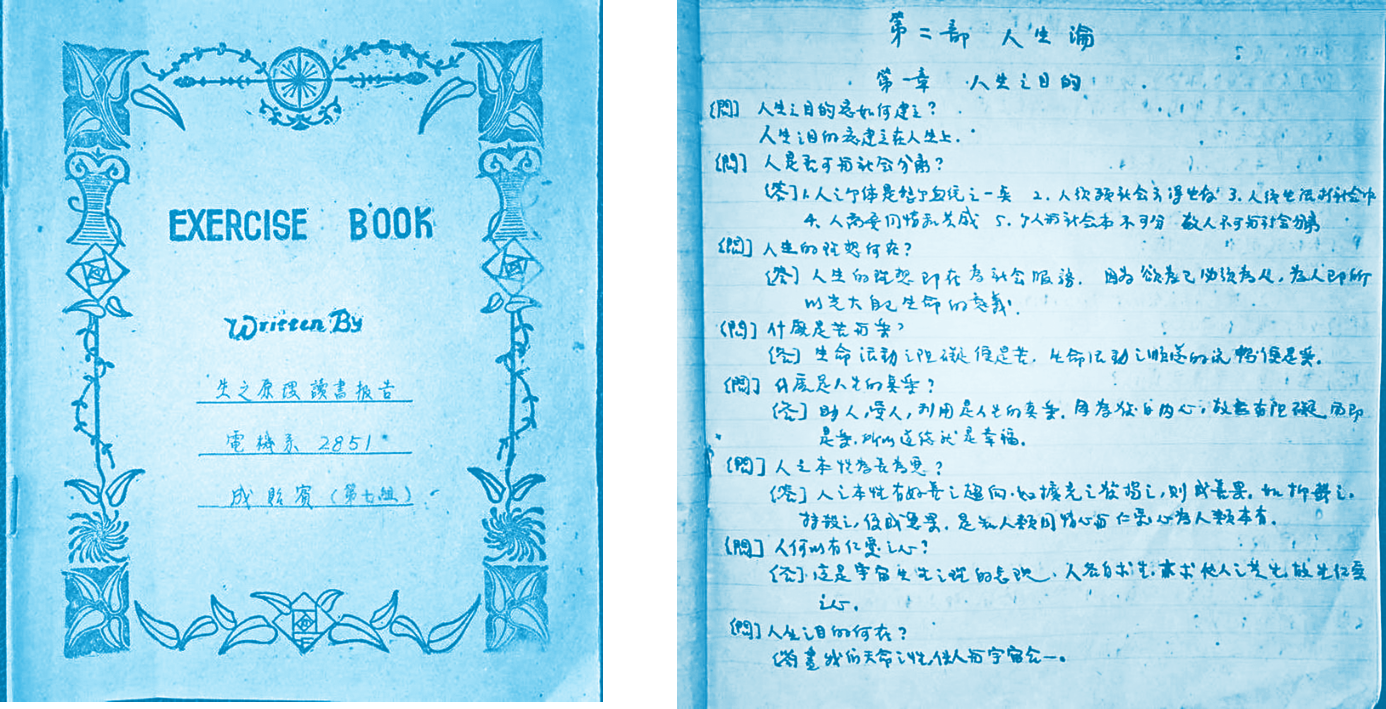 EXERCISE BOOK
Written By
生之原理讀書报告
電機系 2851
成貽賓(第七組)
第二部 人生論
第一章 人生之目的
〔問〕人生之目的應如何建立?
人生目的應建立在人生上.
〔問〕人是否可與社会分離?
〔答〕1.人之个体是整个血统之一 2.人 社会方得生存 3.人 生 社会中
4.人需要同情和 成 5.个人與社会本不可分 故人不可與社会分離
〔問〕人生的理想何在?
〔答〕人生的理想即在為社会服務. 因為欲為己必須為人,為人即所
以光大自己生命的意義.
〔問〕什麼是苦與樂?
〔答〕生命活动之阻礙便是苦. 生命活动之順遂的流暢便是樂.
〔問〕什麼是人生的真樂?
〔答〕助人,愛人,利用是人生的真樂. 自內心,故無有阻礙 而即
是樂.所以道德就是幸福.
〔問〕人之本性為善為惡?
〔答〕人之本性有好善之趨向.如擴充之發揚之,則成善果. 如抑 之.
之,便成惡果. 是知人類同情心與仁愛心為人類本有.
〔問〕人何以有仁愛之心?
〔答〕這是宇宙生生之理的表現. 人各自求生.亦求他人之共生,故生仁愛
之心.
〔問〕人生之目的何在?
〔答〕盡我们天命之性,使人與宇宙合一.